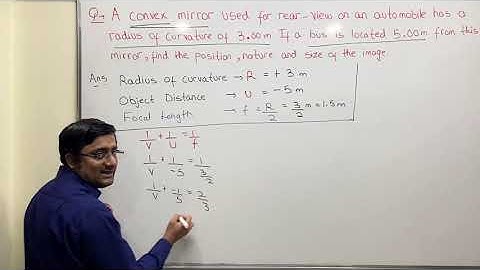 Q→ A convex mirror used for rear-view on an automobile has a
radius of curvature of 3.00m If a bus is located 5.00m from this
mirror, find the position, nature and size of the image.
Ans: Radius of curvature → R = + 3 m
Object Distance → u = - 5 m
Focal Length → f = R/2 = 3/2 m = 1.5 m
1/v + 1/u = 1/f
1/v + 1/-5 = 1/3/2
1/v + -1/5 = 2/3